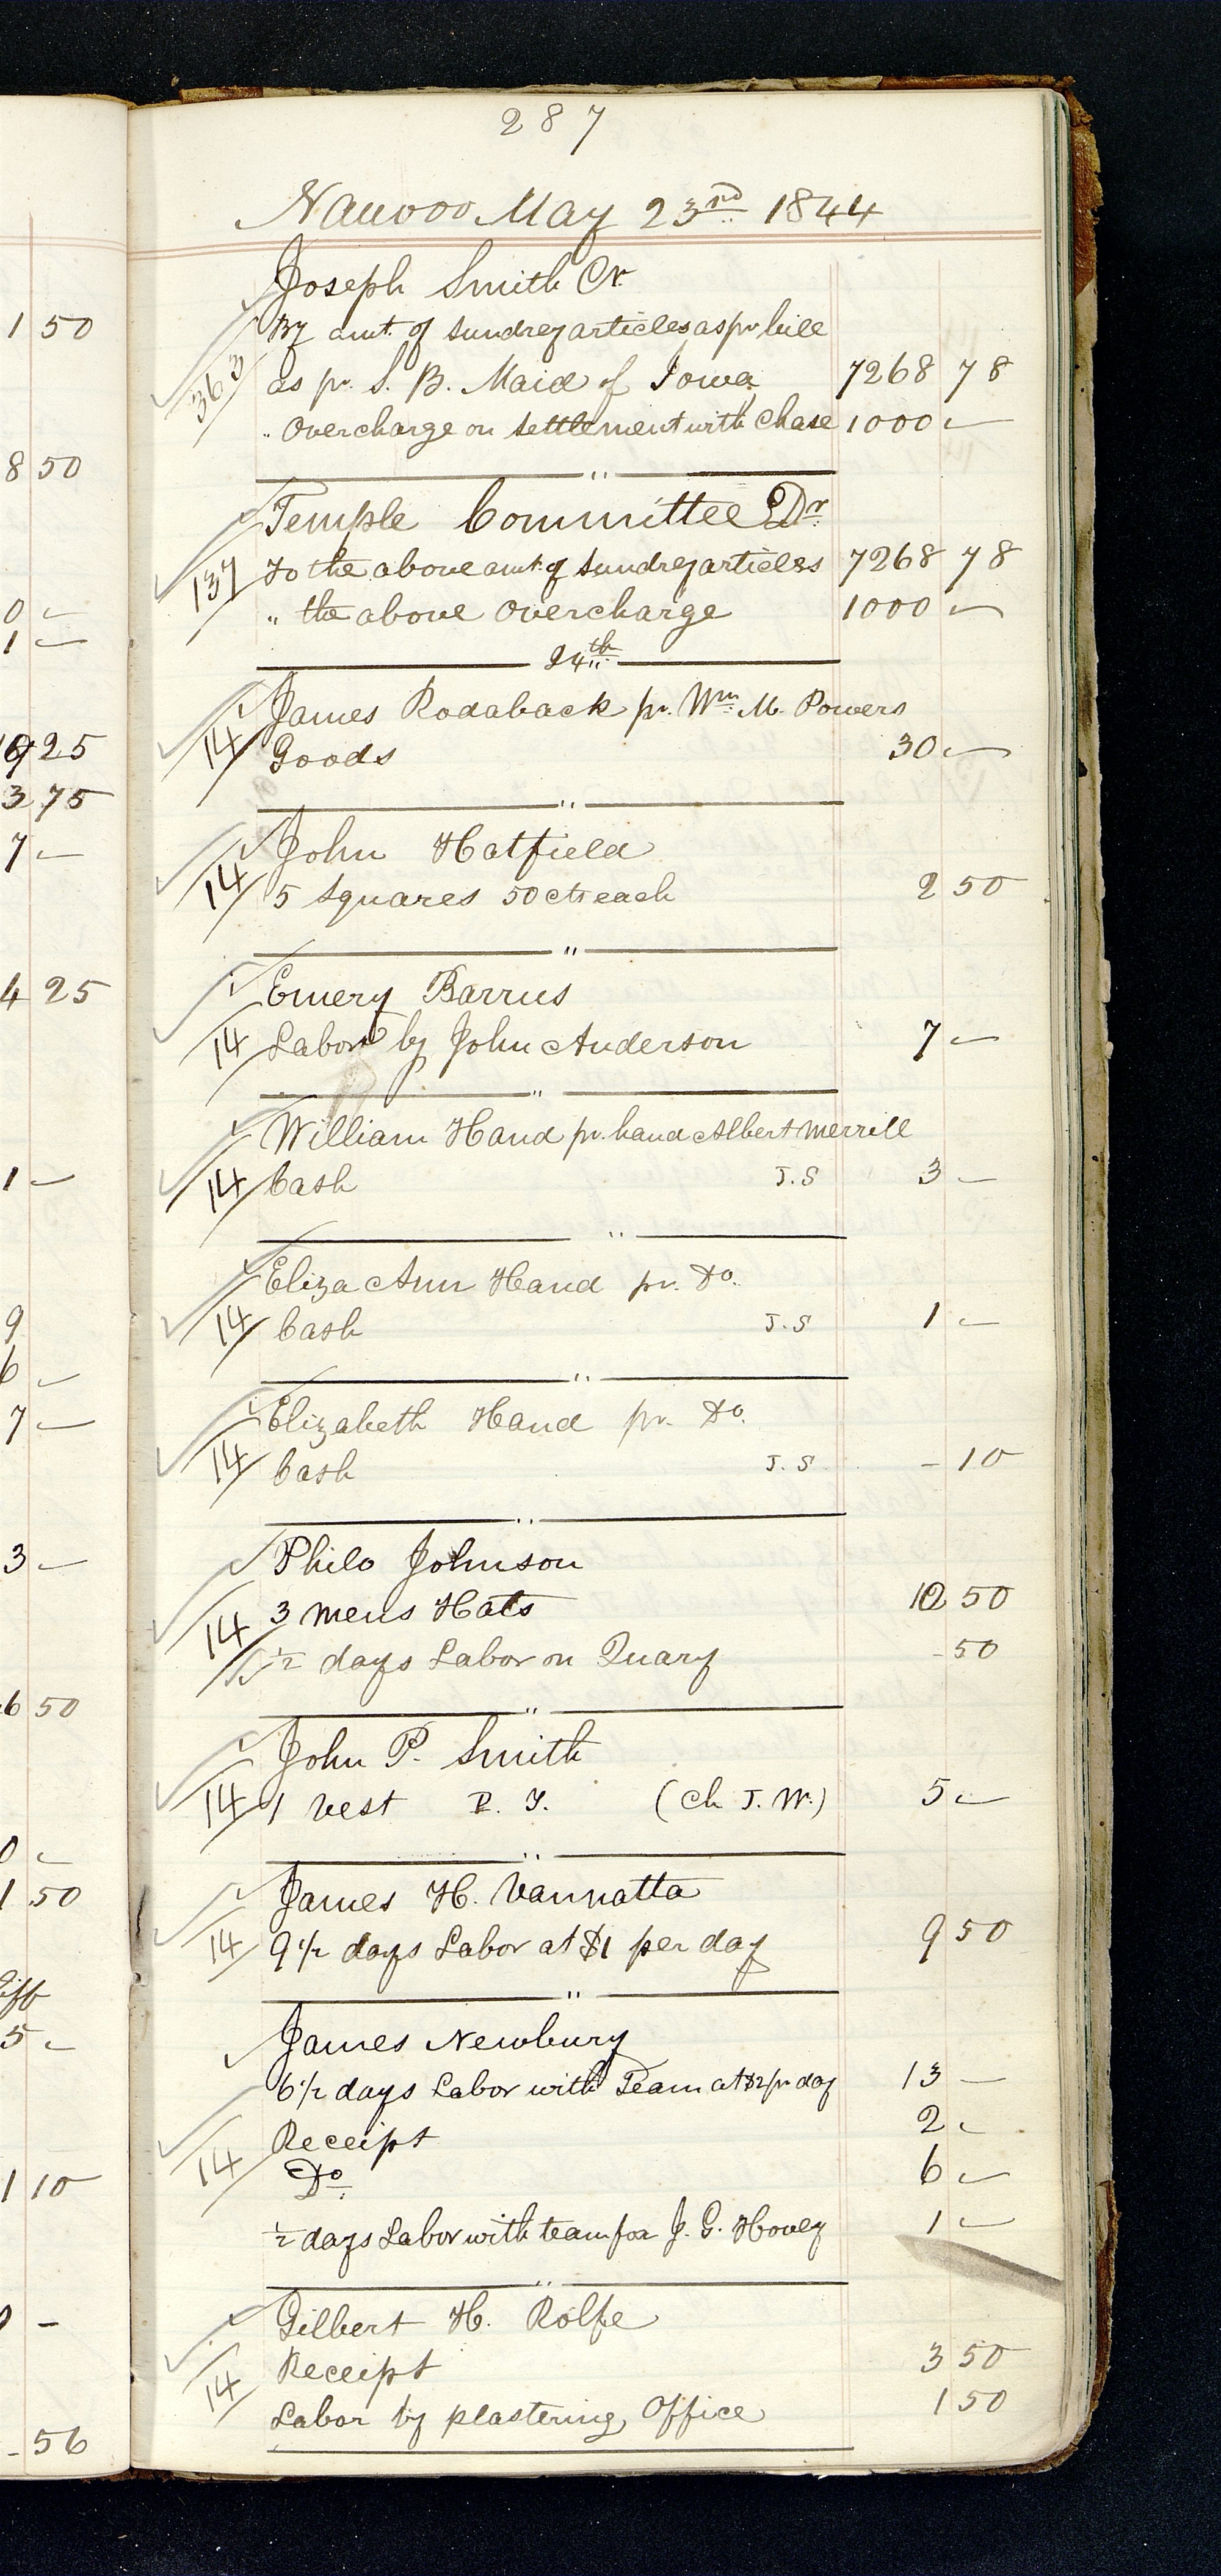 287
Nauvoo May 23rd 1844
Joseph Smith Cr
By amt. of sundrey articles as pr bill
363 as pr. S. B. Maid of Iowa 7268 78
" Overcharge on settlement with Chase 1000 -
"
Temple Committee Dr
137 To the above amt. of sundrey articles 7268 78
" the above overcharge 1000 -
24th
James Rodaback pr. Wm M. Powers
14 Goods 30 -
"
John Hatfield
14 5 squares 50 cts each 2 50
"
Emery Barrus
14 Labor by John Anderson 7 -
"
William Hand pr. hand Albert Merrill
14 Cash J.S 3 -
"
Eliza Ann Hand pr. Do.
14 Cash J.S 1 -
"
Elizabeth Hand pr. Do.
14 Cash J.S - 10
"
Philo Johnson
14 3 mens Hats 12 50
1/2 days Labor on Quary - 50
"
John P. Smith
14 1 Vest P. T. (Ch J. W.) 5 -
"
James H. Vannatta
14 9 1/2 days Labor at $1 per day 9 50
"
James Newbury
6 1/2 days Labor with Team at $2 pr day 13 -
14 Receipt 2 -
Do. 6 -
1/2 days Labor with team for J. G. Hovey 1 -
"
Gilbert H. Rolfe
14 Receipt 3 50
Labor by plastering Office 1 50
1 50
8 50
0 -
1 -
25
3 75
7 -
4 25
1 -
9
6 -
7 -
3 -
6 50
0 -
1 50
5 -
1 10
0 -
- 56